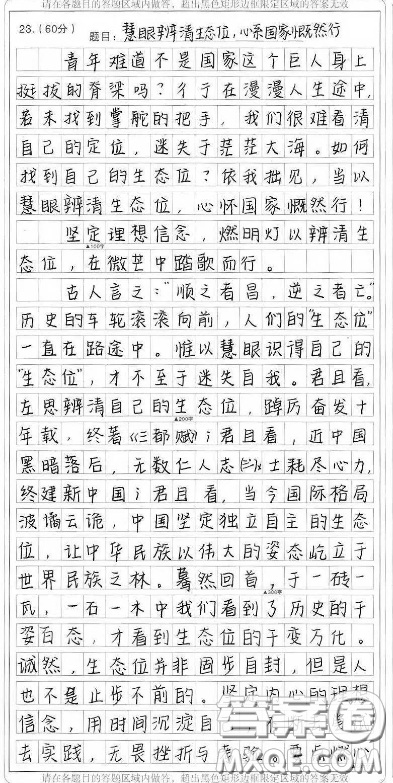 请在各题目的答题区域内做答，超出黑色矩形边框限定区域的答案无效
23.(60分) 题目：慧眼辨清生态位，心系国家慨然行
青年难道不是国家这个巨人身上
挺拔的脊梁吗？行于在漫漫人生途中，
若未找到掌舵的把手，我们很难看清
自己的定位，迷失于茫茫大海。如何
找到自己的生态位？依我拙见，当以
慧眼辨清生态位，心怀国家慨然行！
坚定理想信念，燃明灯以辨清生
▲100字
态位，在微芒中踏歌而行。
古人言之："顺之者昌，逆之者亡。"
历史的车轮滚滚向前，人们的"生态位"
一直在路途中。惟以慧眼识得自己的
"生态位"，才不至于迷失自我。君且看，
左思辨清自己的生态位，踔厉奋发十
▲200字
年载，终著《三都赋》；君且看，近中国
黑暗落后，无数仁人志士耗尽心力，
终建新中国；君且看，当今国际格局
波谲云诡，中国坚定独立自主的生态
位，让中华民族以伟大的姿态屹立于
世界民族之林。蓦然回首，于一砖一
▲300字
瓦，一石一木中我们看到了历史的千
姿百态，才看到生态位的千变万化。
诚然，生态位并非固步自封，但是人
也不是止步不前的。坚定内心的理想
信念，用时间沉淀自
去实践，无畏挫折与
请在各题目的答题区域内做答，超出黑色矩形边框限定区域的答案无效